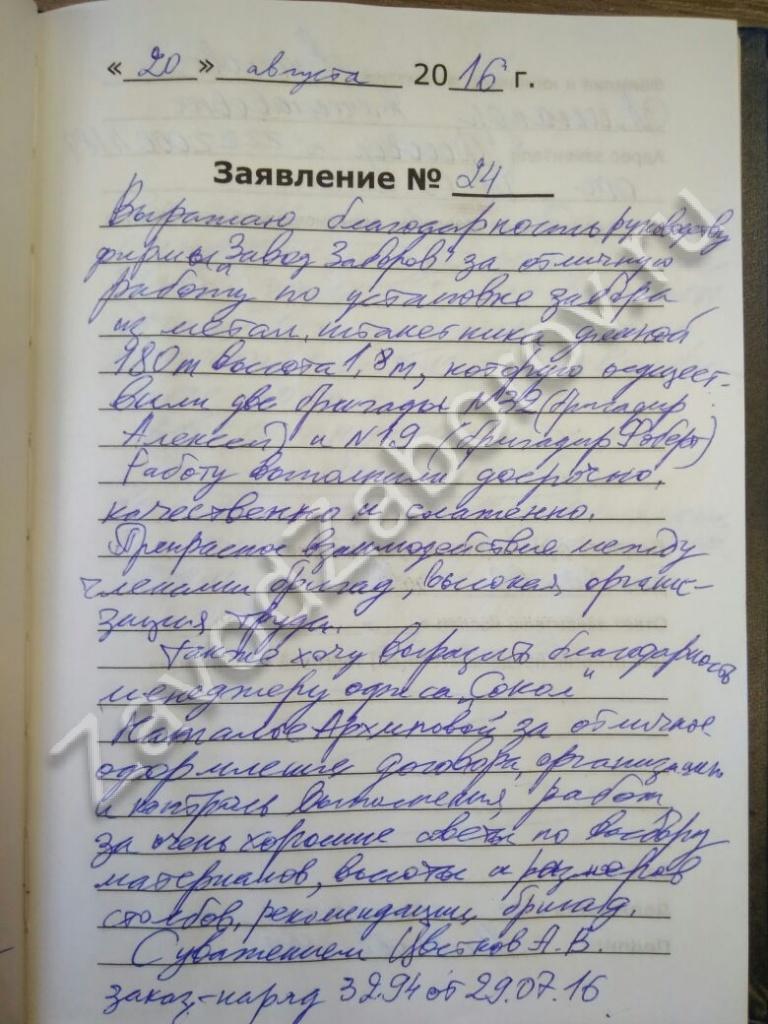 « 20 » августа 2016 г.
Заявление № 24
Выражаю благодарность руководству
фирмы „Завод Заборов" за отличную
работу по установке забора
из метал. штакетника длиной
180m высота 1,8м, которую осущест-
вили две бригады №32 (бригадир
Алексей) и №19 (бригадир Роберт)
Работу выполнили досрочно,
качественны и слаженно.
Прекрасное взаимодействие между
членами бригад, высокая органи-
зация труда.
Также хочу выразить благодарность
менеджеру офиса „Сокол"
Наталье Архиповой за отличное
оформление договора, организацию
и контроль выполнения работ,
за очень хорошие советы по выбору
материалов, высоты и размеров
столбов, рекомендации бригад.
С уважением Цветков А.В.
заказ-наряд 3294 от 29.07.16
ZavodZaborov.ru